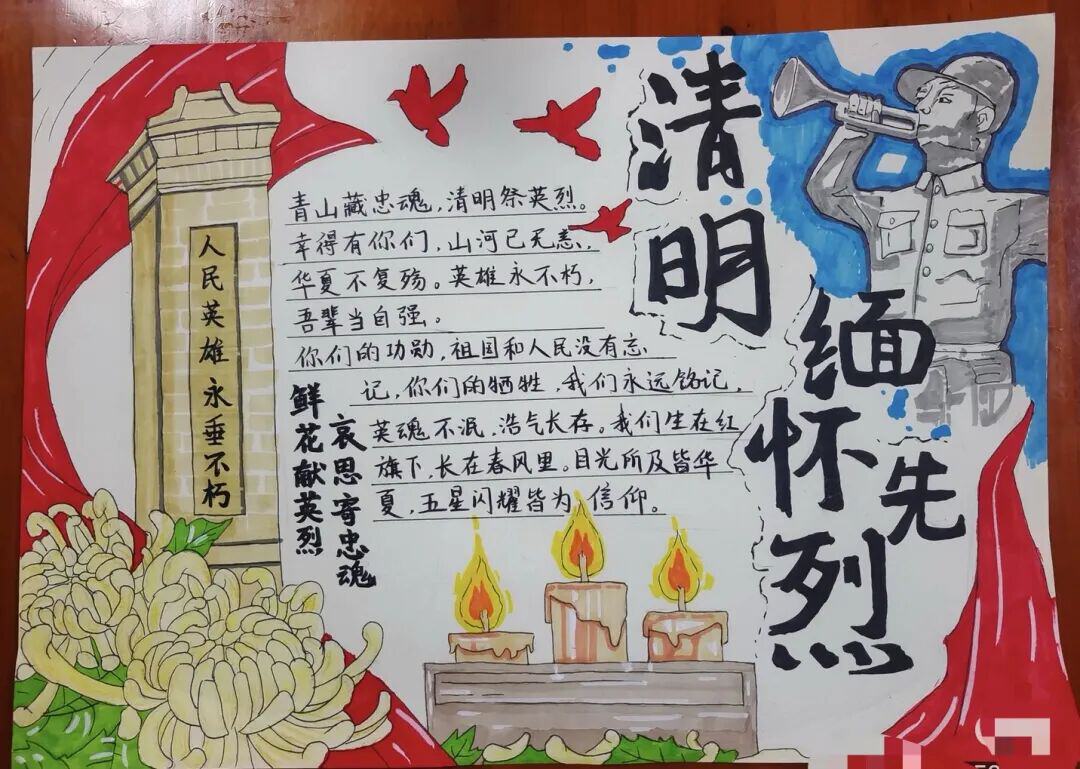 清明
缅怀先烈
人民英雄永垂不朽
青山藏忠魂，清明祭英烈。
幸得有你们，山河已无恙，
华夏不复殇。英雄永不朽，
吾辈当自强。
你们的功勋，祖国和人民没有忘
记，你们的牺牲，我们永远铭记，
英魂不泯，浩气长存。我们生在红
旗下，长在春风里。目光所及皆华
夏，五星闪耀皆为信仰。
鲜花献英烈
哀思寄忠魂